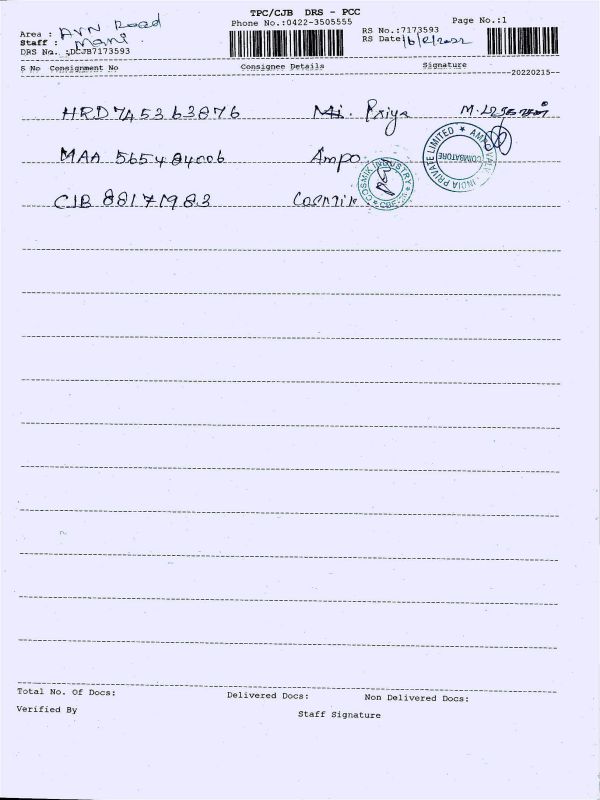 TPC/CJB DRS - PCC
Phone No.:0422-3505555 Page No.:1
Area : AVN Road
RS No.:7173593
Staff : Mani
RS Date 16/2/2022
DRS No. :DCJB7173593
S No Consignment No Consignee Details Signature
20220215
HRD 745363876 Priya M.
MAA 565484006 Ampo
PRIVATE LIMITED ★ INDIA COIMBATORE
CJB 88171983 Cosmik
COSMIK INDUSTRY ★ CBE
Total No. Of Docs: Delivered Docs: Non Delivered Docs:
Verified By Staff Signature